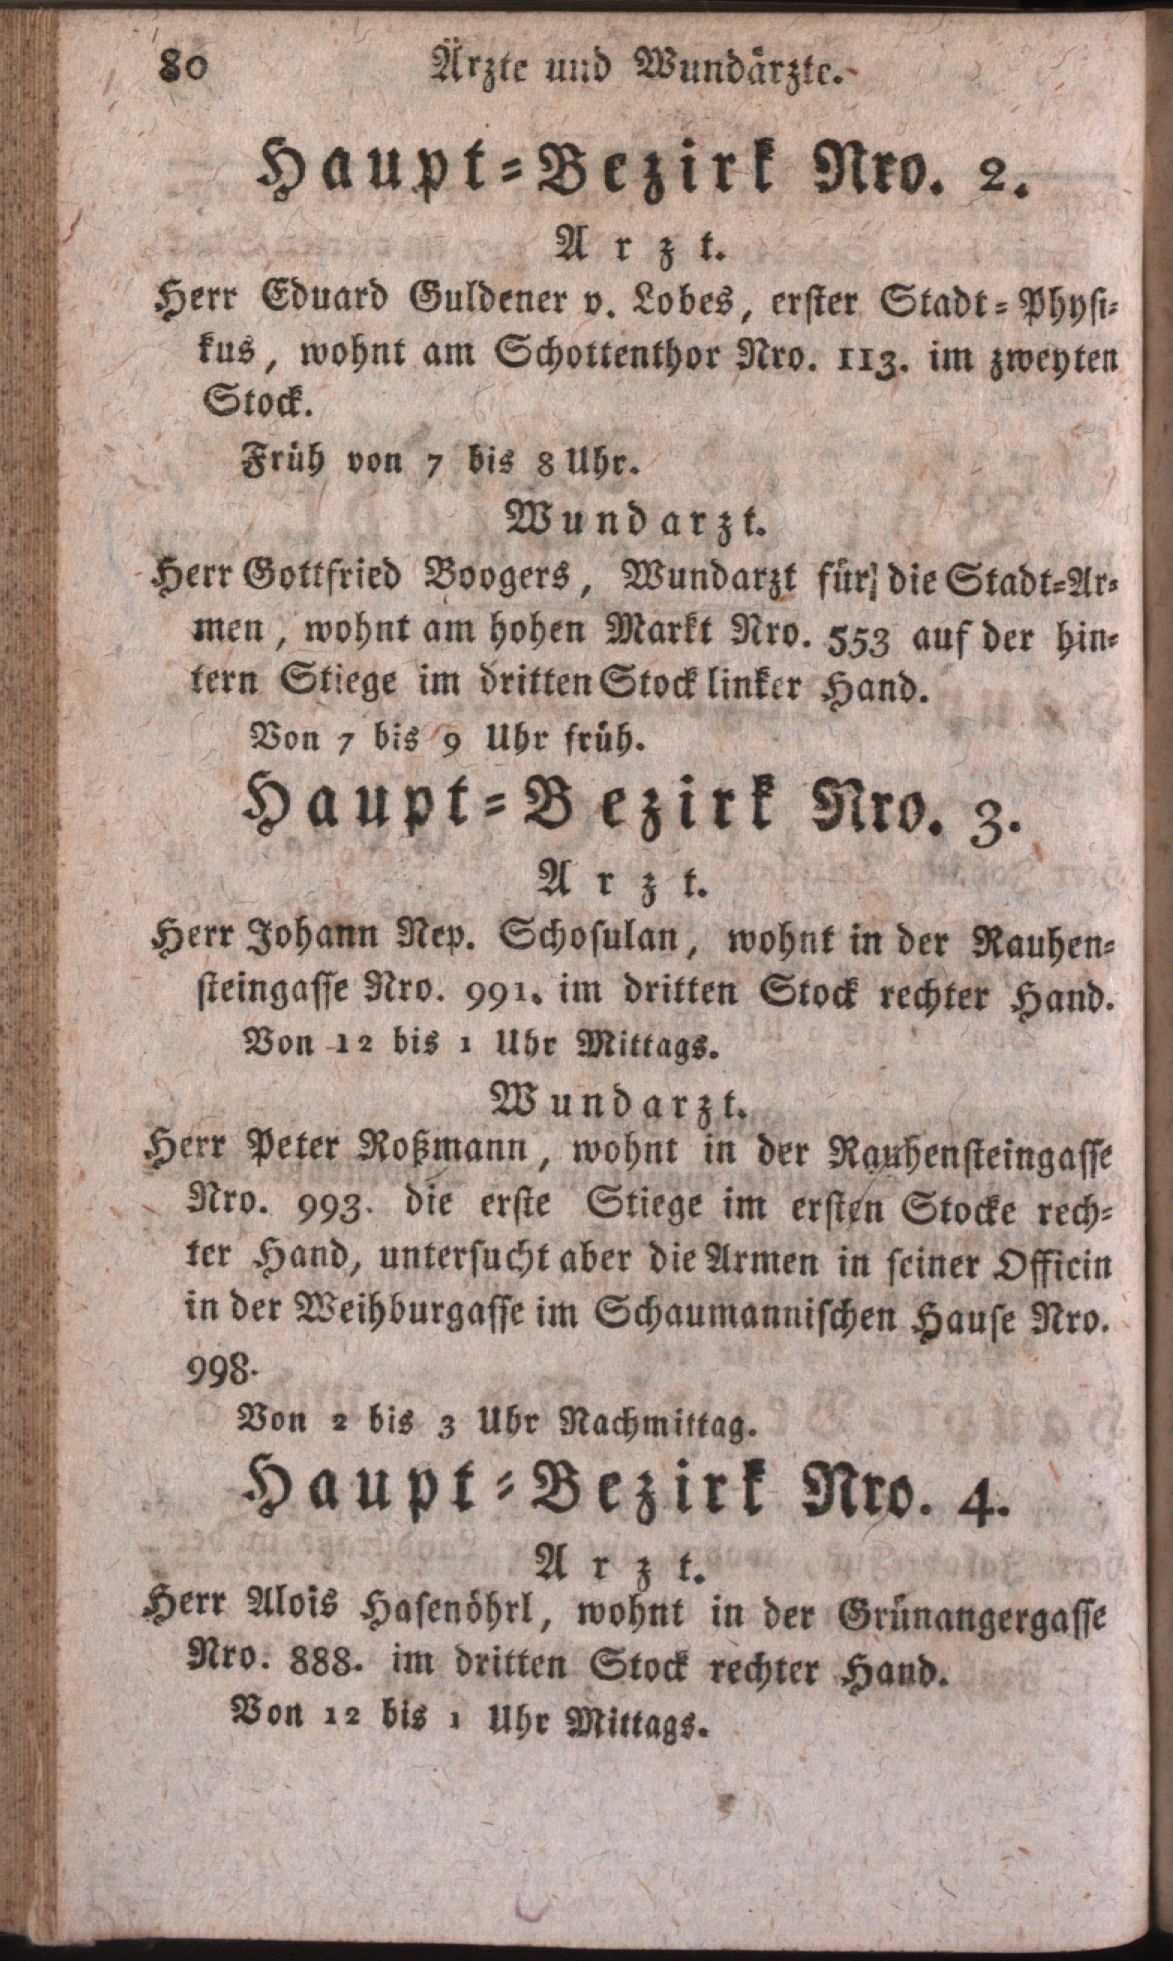 80 Ärzte und Wundärzte.
Haupt-Bezirk Nro. 2.
Arzt.
Herr Eduard Guldener v. Lobes, erster Stadt-Physi-
kus, wohnt am Schottenthor Nro. 113. im zweyten
Stock.
Früh von 7 bis 8 Uhr.
Wundarzt.
Herr Gottfried Boogers, Wundarzt für die Stadt-Ar-
men, wohnt am hohen Markt Nro. 553 auf der hin-
tern Stiege im dritten Stock linker Hand.
Von 7 bis 9 Uhr früh.
Haupt-Bezirk Nro. 3.
Arzt.
Herr Johann Nep. Schosulan, wohnt in der Rauhen-
steingasse Nro. 991. im dritten Stock rechter Hand.
Von 12 bis 1 Uhr Mittags.
Wundarzt.
Herr Peter Roßmann, wohnt in der Rauhensteingasse
Nro. 993. die erste Stiege im ersten Stocke rech-
ter Hand, untersucht aber die Armen in seiner Officin
in der Weihburgasse im Schaumannischen Hause Nro.
998.
Von 2 bis 3 Uhr Nachmittag.
Haupt-Bezirk Nro. 4.
Arzt.
Herr Alois Hasenöhrl, wohnt in der Grünangergasse
Nro. 888. im dritten Stock rechter Hand.
Von 12 bis 1 Uhr Mittags.